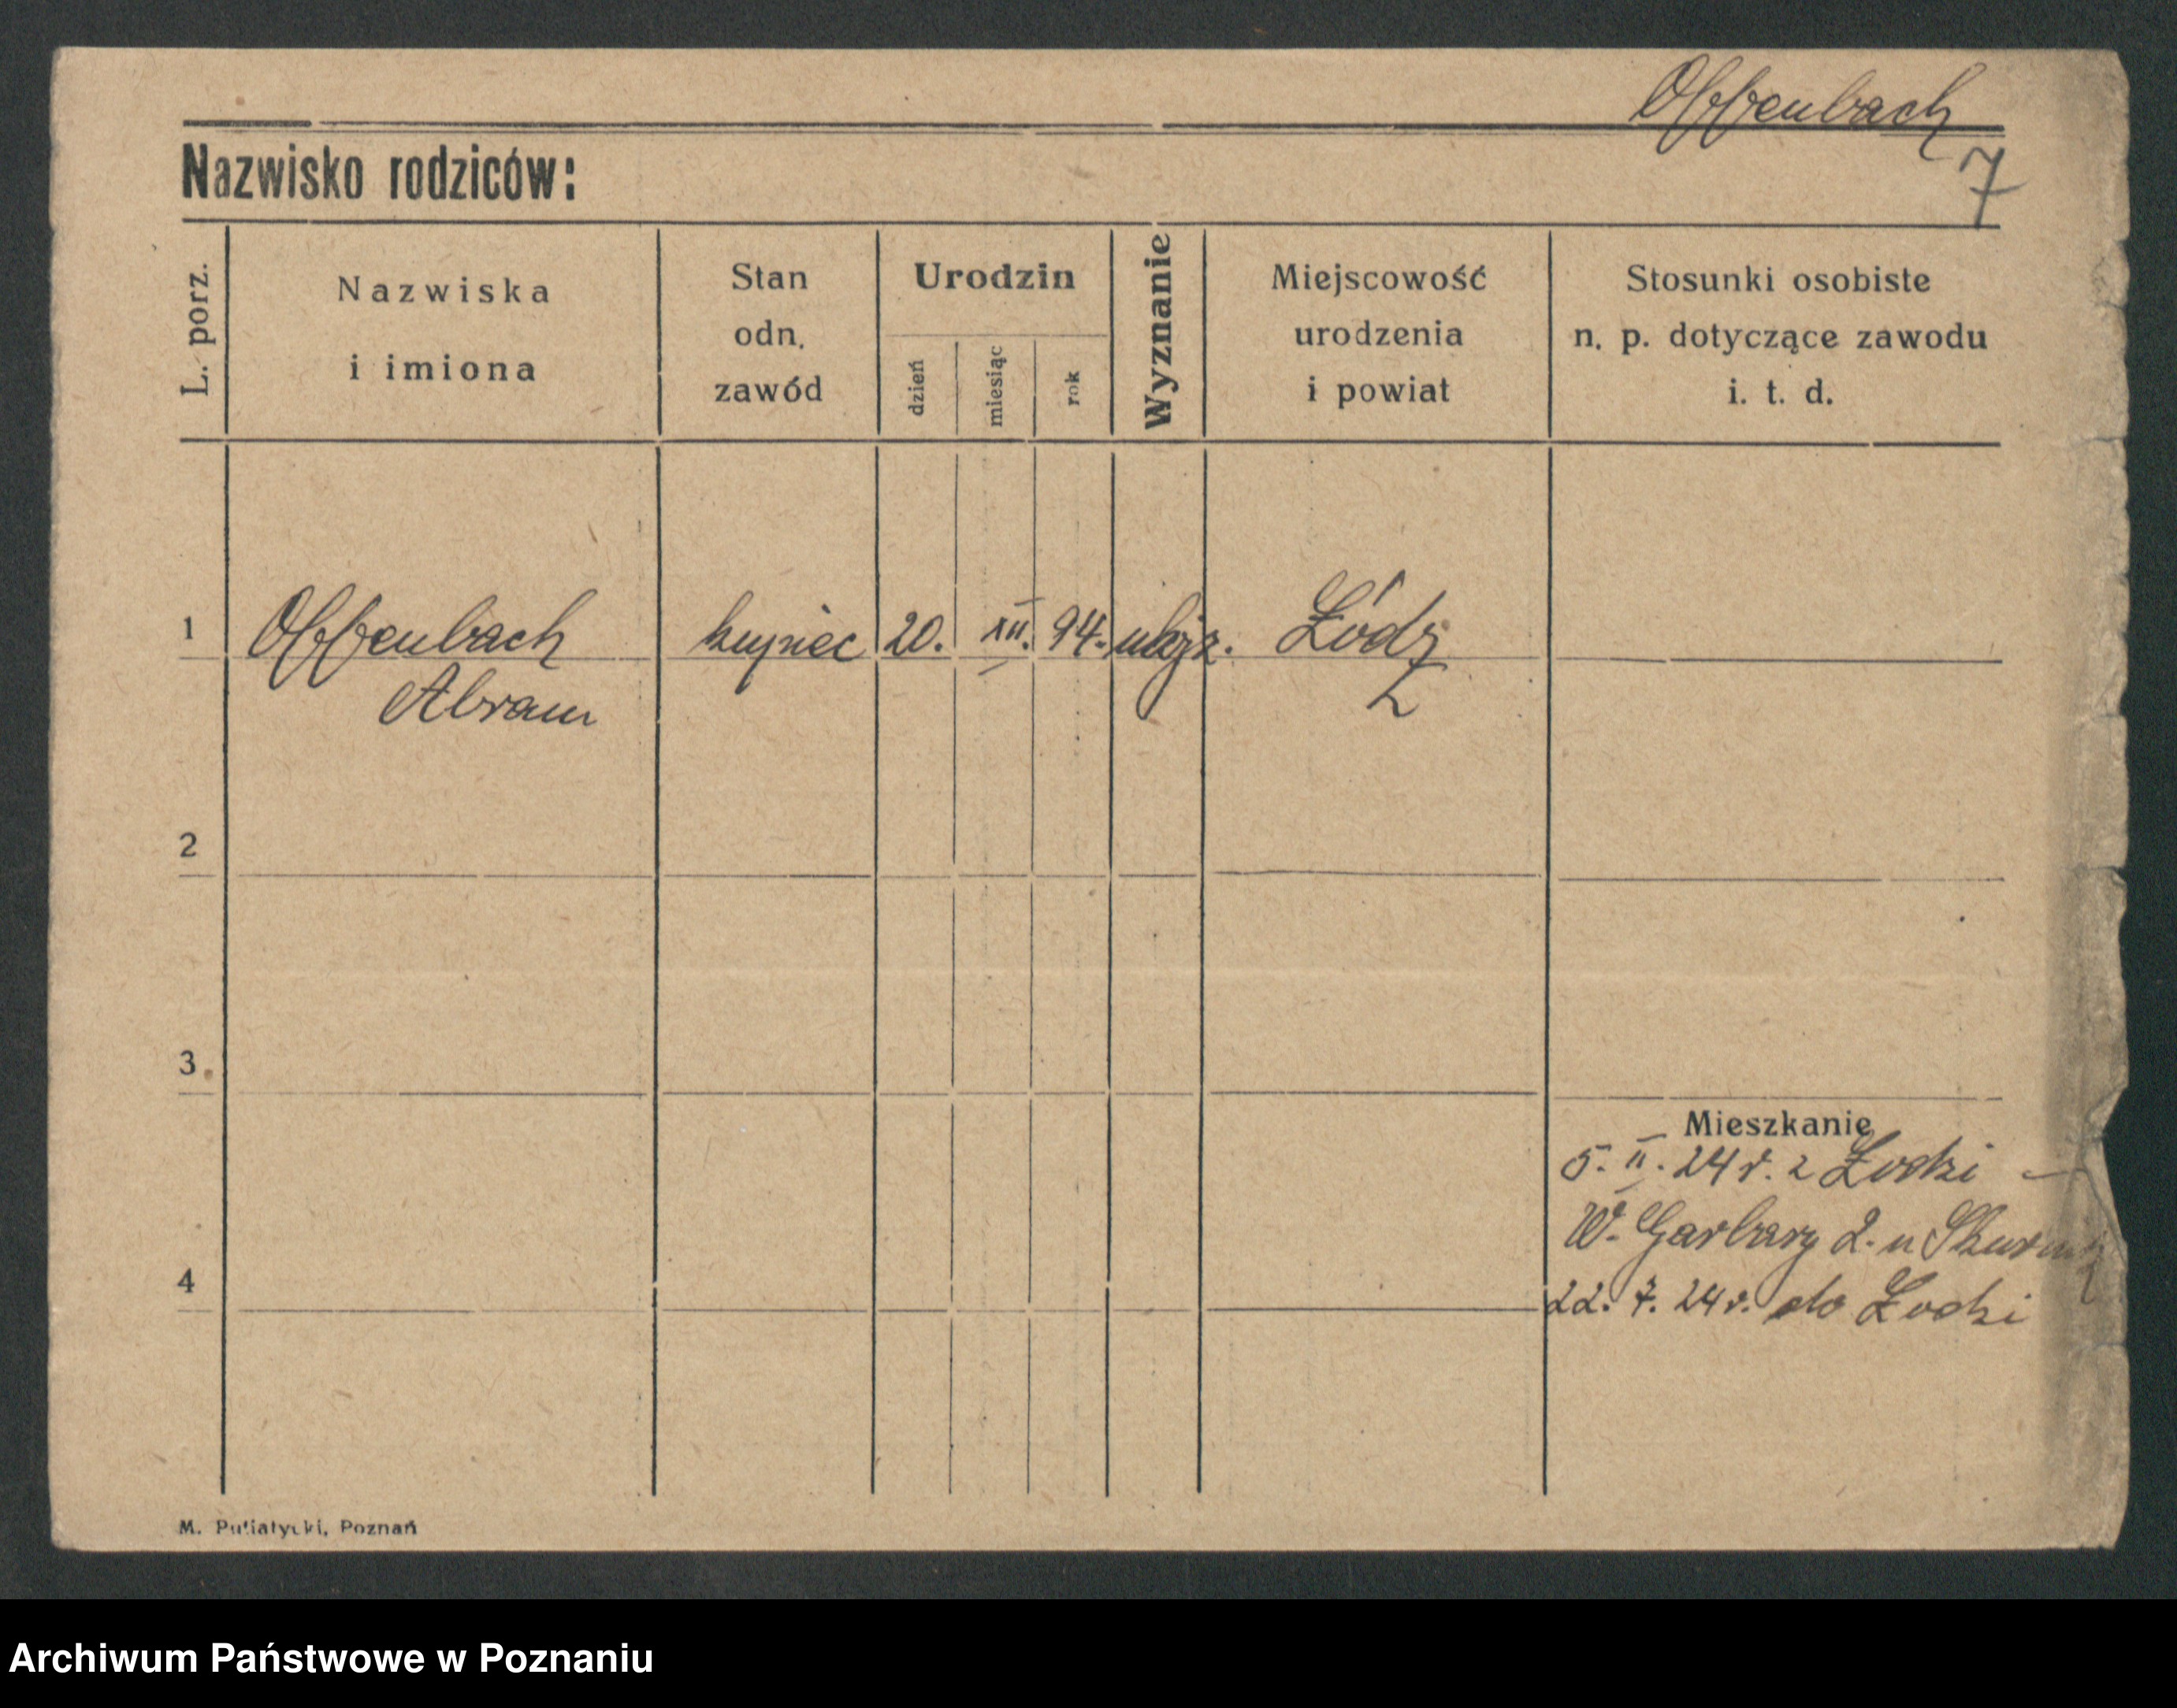 Offenbach
7
Nazwisko rodziców:
L. porz.
Nazwiska
i imiona
Stan
odn.
zawód
Urodzin
dzień
miesiąc
rok
Wyznanie
Miejscowość
urodzenia
i powiat
Stosunki osobiste
n. p. dotyczące zawodu
i. t. d.
1 Offenbach kupiec 20. XII. 94. mojż. Łódź
Abram Ł
2
3
Mieszkanie
5. II. 24 r. z Łodzi –
W. Garbary 2. u
4
22. 7. 24 r. do Łodzi
M. Putiatycki, Poznań
Archiwum Państwowe w Poznaniu